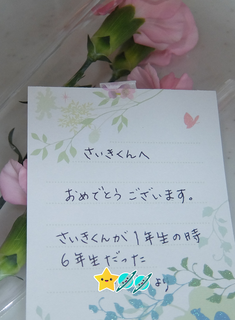 さいきくんへ
おめでとうございます。
さいきくんが1年生の時
6年生だった
より